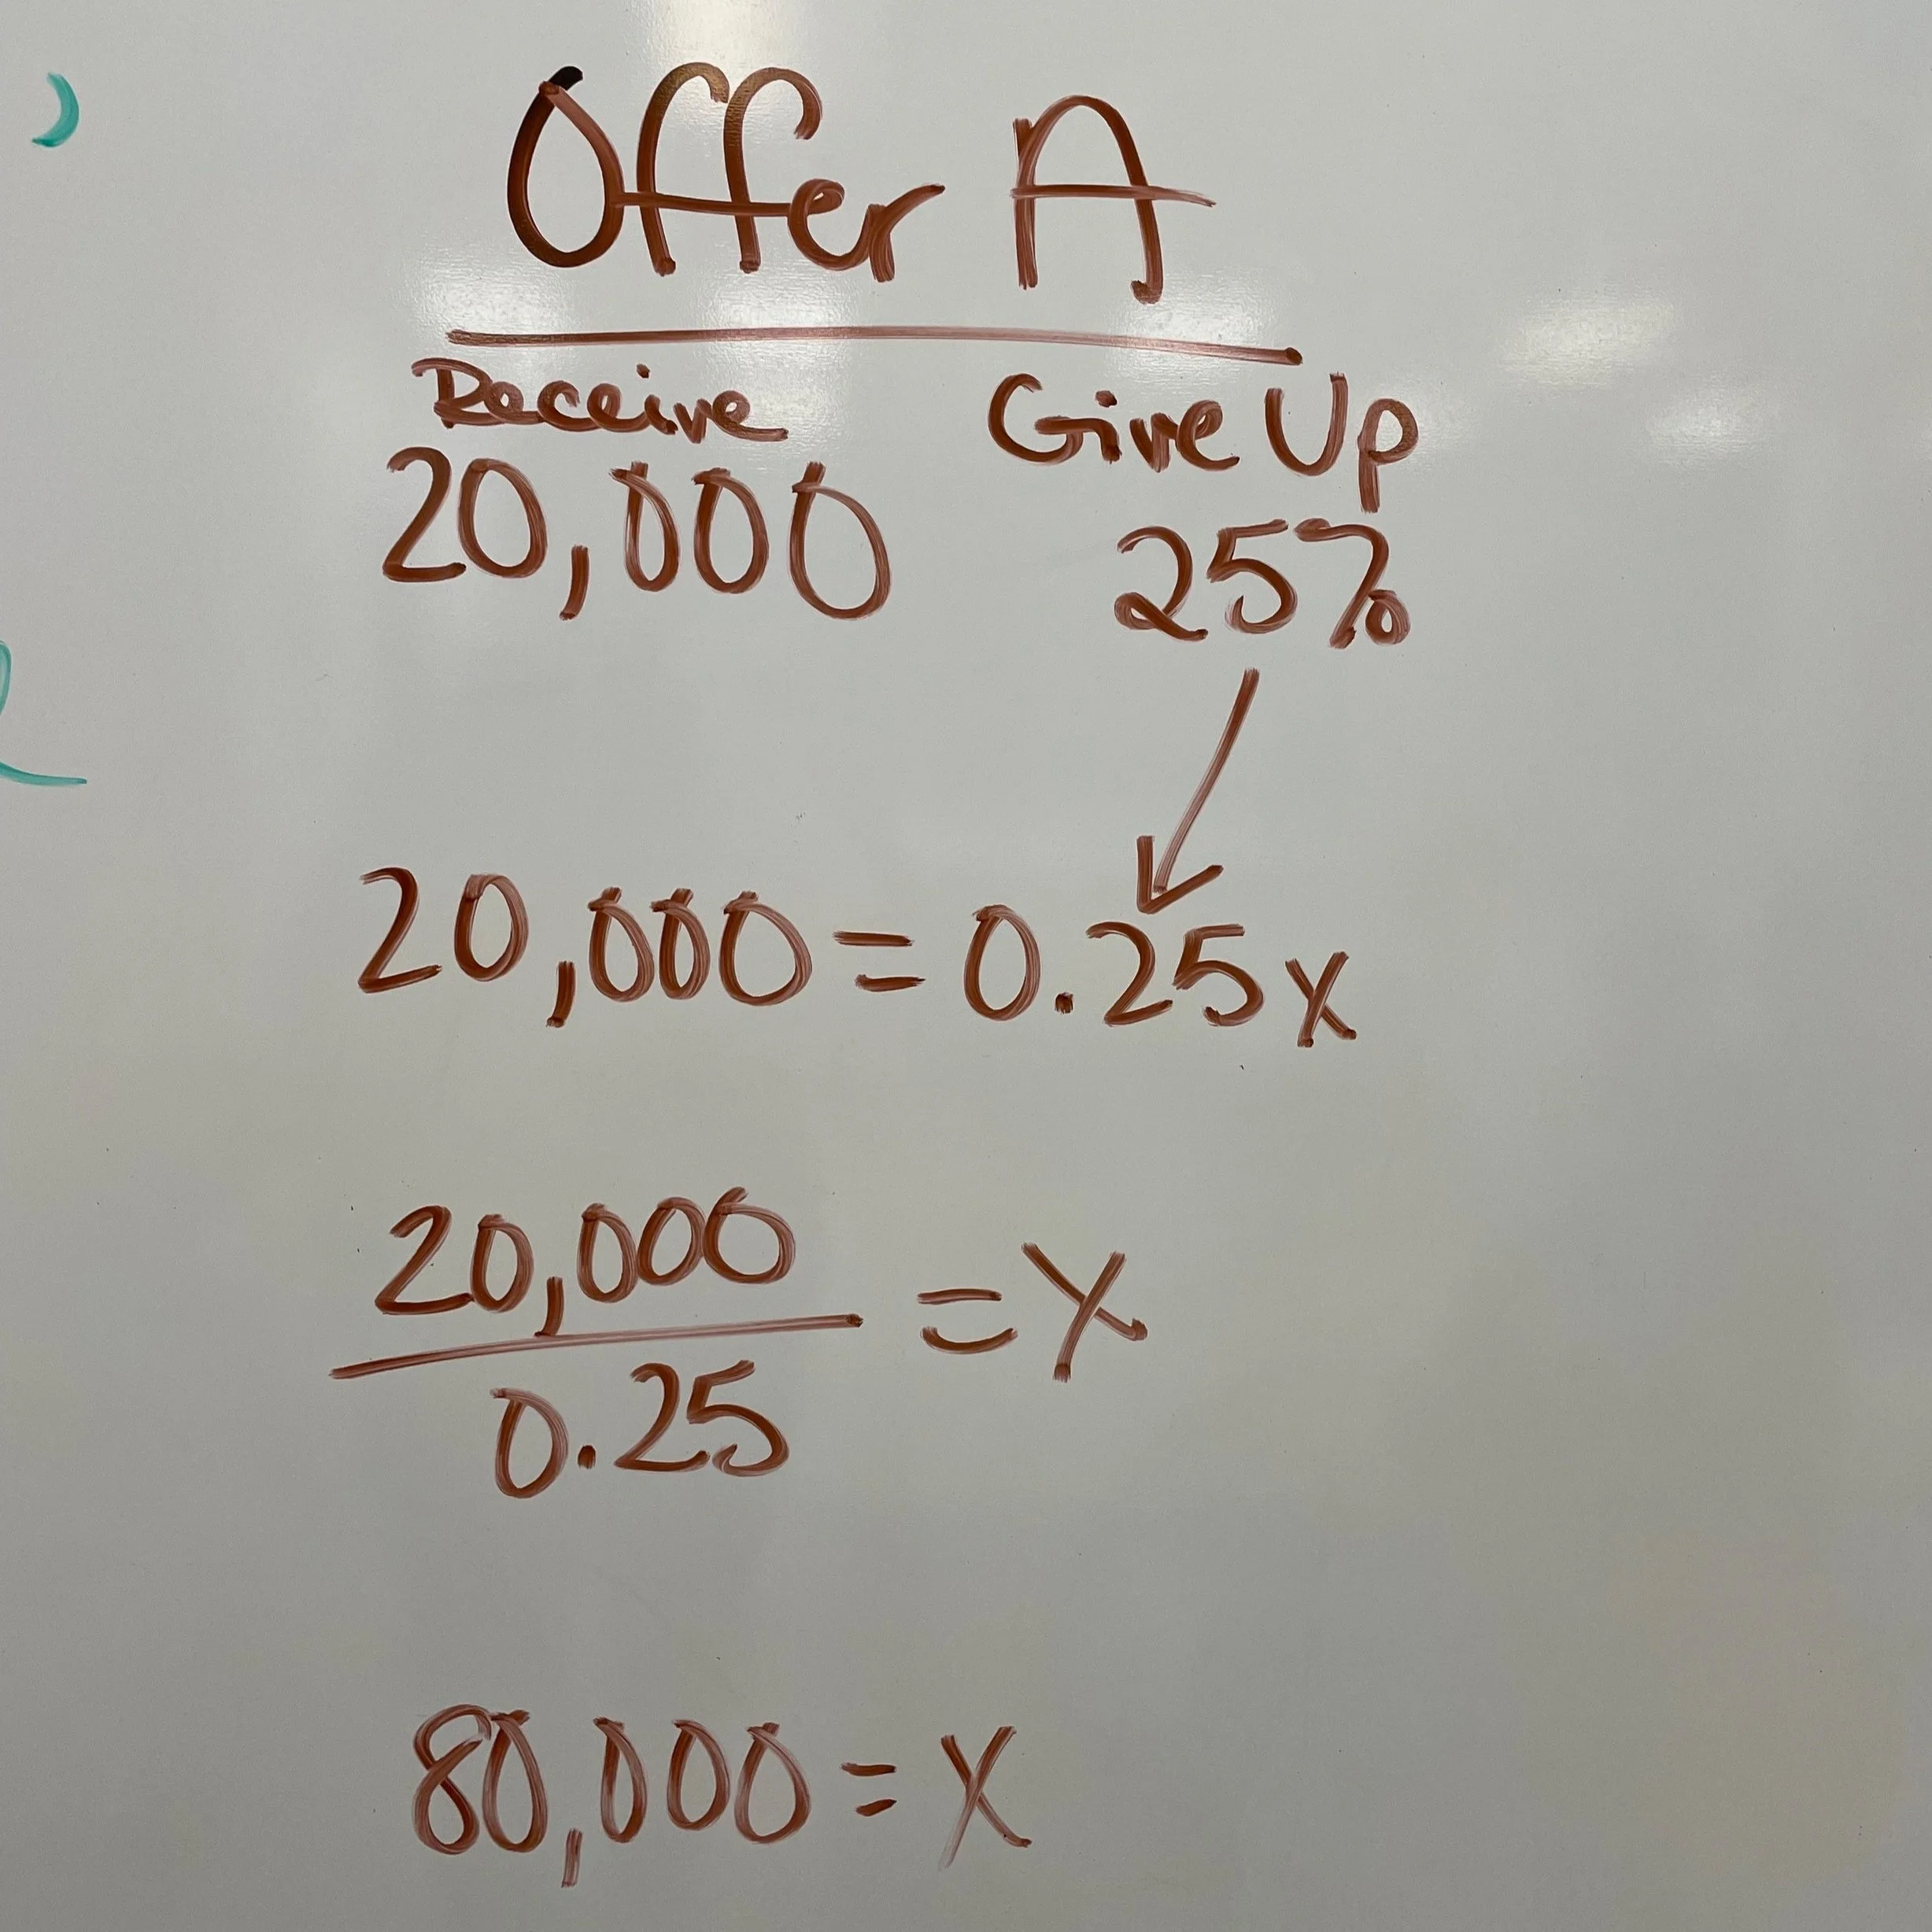 Offer A
Receive Give Up
20,000 25%
20,000 = 0.25x
20,000
0.25
= X
80,000 = X